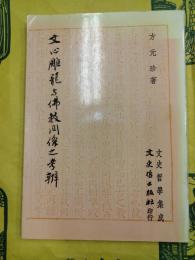 方元珍著
文心雕龍与佛教関係之考辨
文史哲學集成
文史哲出版社印行